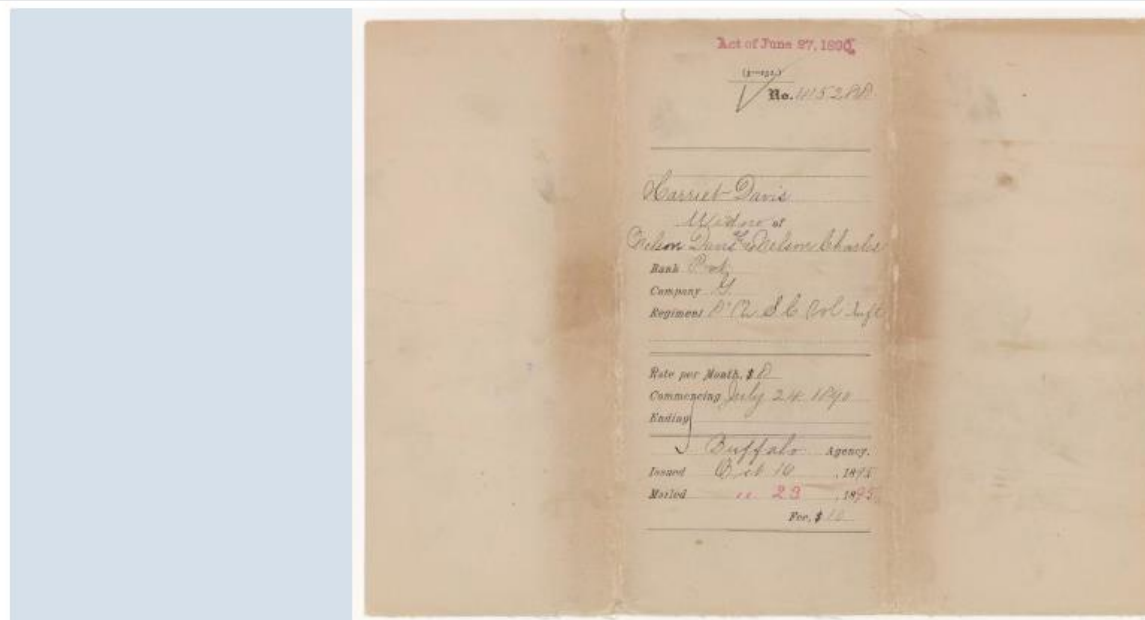 Act of June 27, 1890.
No. 415288
Harriet Davis
Widow of
Nelson Davis Nelson Charles
Rank Pvt
Company G
Regiment 8" U S C Vol Inft
Rate per Month, $ 8
Commencing July 24 1890
Ending
Buffalo Agency.
Issued Oct 16, 1895
Mailed " 23, 1895
Fee, $ 10